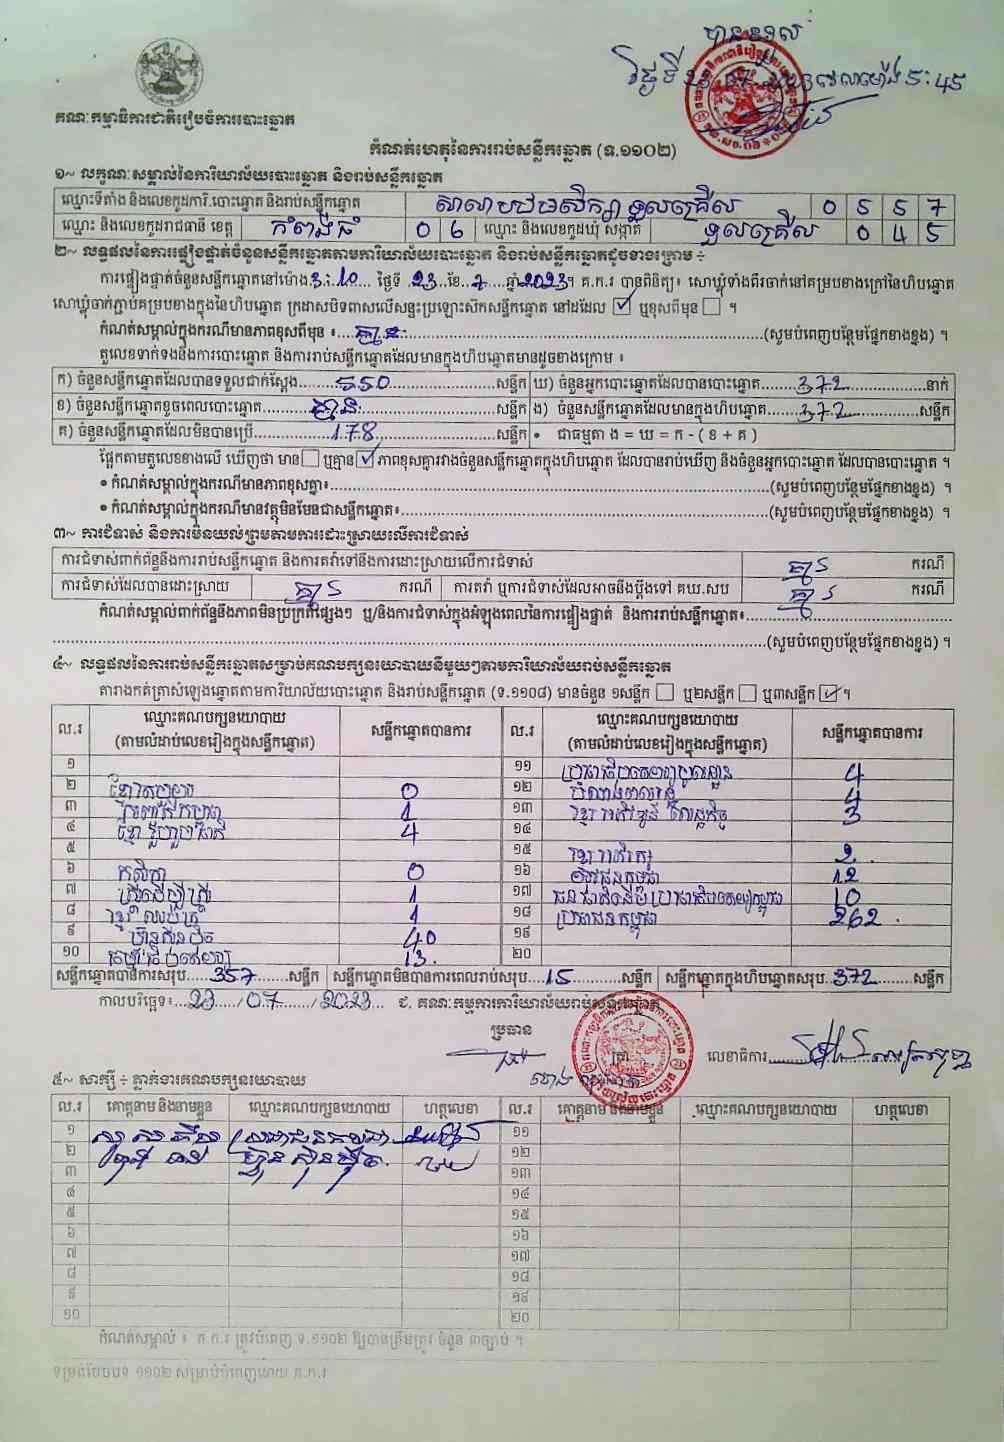 បានទទួល
ថ្ងៃទី 23 07 2023 វេលាម៉ោង 5:45
គណៈកម្មាធិការជាតិរៀបចំការបោះឆ្នោត
កំណត់ហេតុនៃការរាប់សន្លឹកឆ្នោត (ទ.១១០២)
១~ លក្ខណៈសម្គាល់នៃការិយាល័យបោះឆ្នោត និងរាប់សន្លឹកឆ្នោត
ឈ្មោះទីតាំង និងលេខកូដការិ.បោះឆ្នោត និងរាប់សន្លឹកឆ្នោត សាលាបឋមសិក្សា ទួលគ្រើល 0 5 5 7
ឈ្មោះ និងលេខកូដរាជធានី ខេត្ត កំពង់ធំ 0 6 ឈ្មោះ និងលេខកូដឃុំ សង្កាត់ ទួលគ្រើល 0 4 5
២~ លទ្ធផលនៃការផ្ទៀងផ្ទាត់ចំនួនសន្លឹកឆ្នោតតាមការិយាល័យបោះឆ្នោត និងរាប់សន្លឹកឆ្នោតដូចខាងក្រោម ÷
ការផ្ទៀងផ្ទាត់ចំនួនសន្លឹកឆ្នោតនៅម៉ោង 3:10 ថ្ងៃទី 23 ខែ 7 ឆ្នាំ 2023។ គ.ក.រ បានពិនិត្យ៖ សោឃ្លុំទាំងពីរចាក់នៅគម្របខាងក្រៅនៃហិបឆ្នោត
សោឃ្លុំចាក់ភ្ជាប់គម្របខាងក្នុងនៃហិបឆ្នោត ក្រដាសបិទពាសលើសន្ទះប្រឡោះសៀកសន្លឹកឆ្នោត នៅដដែល ☑ ឬខុសពីមុន ☐ ។
កំណត់សម្គាល់ក្នុងករណីមានភាពខុសពីមុន ៖ គ្មាន (សូមបំពេញបន្ថែមផ្នែកខាងខ្នង) ។
តួលេខទាក់ទងនឹងការបោះឆ្នោត និងការរាប់សន្លឹកឆ្នោតដែលមានក្នុងហិបឆ្នោតមានដូចខាងក្រោម ៖
ក) ចំនួនសន្លឹកឆ្នោតដែលបានទទួលជាក់ស្តែង 550 សន្លឹក ឃ) ចំនួនអ្នកបោះឆ្នោតដែលបានបោះឆ្នោត 372 នាក់
ខ) ចំនួនសន្លឹកឆ្នោតខូចពេលបោះឆ្នោត គ្មាន សន្លឹក ង) ចំនួនសន្លឹកឆ្នោតដែលមានក្នុងហិបឆ្នោត 372 សន្លឹក
គ) ចំនួនសន្លឹកឆ្នោតដែលមិនបានប្រើ 178 សន្លឹក • ជាធម្មតា ង = ឃ = ក - ( ខ + គ )
ផ្អែកតាមតួលេខខាងលើ ឃើញថា មាន ☐ ឬគ្មាន ☑ ភាពខុសគ្នារវាងចំនួនសន្លឹកឆ្នោតក្នុងហិបឆ្នោត ដែលបានរាប់ឃើញ និងចំនួនអ្នកបោះឆ្នោត ដែលបានបោះឆ្នោត ។
• កំណត់សម្គាល់ក្នុងករណីមានភាពខុសគ្នា៖ (សូមបំពេញបន្ថែមផ្នែកខាងខ្នង) ។
• កំណត់សម្គាល់ក្នុងករណីមានវត្ថុមិនមែនជាសន្លឹកឆ្នោត៖ (សូមបំពេញបន្ថែមផ្នែកខាងខ្នង) ។
៣~ ការជំទាស់ និងការមិនយល់ព្រមតាមការដោះស្រាយលើការជំទាស់
ការជំទាស់ពាក់ព័ន្ធនឹងការរាប់សន្លឹកឆ្នោត និងការតវ៉ាទៅនឹងការដោះស្រាយលើការជំទាស់ គ្មាន ករណី
ការជំទាស់ដែលបានដោះស្រាយ គ្មាន ករណី ការតវ៉ា ឬការជំទាស់ដែលអាចនឹងប្តឹងទៅ គឃ.សប គ្មាន ករណី
កំណត់សម្គាល់ពាក់ព័ន្ធនឹងភាពមិនប្រក្រតីផ្សេងៗ ឬ/និងការជំទាស់ក្នុងអំឡុងពេលនៃការផ្ទៀងផ្ទាត់ និងការរាប់សន្លឹកឆ្នោត៖
(សូមបំពេញបន្ថែមផ្នែកខាងខ្នង) ។
៤~ លទ្ធផលនៃការរាប់សន្លឹកឆ្នោតសម្រាប់គណបក្សនយោបាយនីមួយៗតាមការិយាល័យរាប់សន្លឹកឆ្នោត
តារាងកត់ត្រាសំឡេងឆ្នោតតាមការិយាល័យបោះឆ្នោត និងរាប់សន្លឹកឆ្នោត (ទ.១១០៨) មានចំនួន ១សន្លឹក ☐ ឬ២សន្លឹក ☐ ឬ៣សន្លឹក ☑ ។
ល.រ ឈ្មោះគណបក្សនយោបាយ (តាមលំដាប់លេខរៀងក្នុងសន្លឹកឆ្នោត) សន្លឹកឆ្នោតបានការ ល.រ ឈ្មោះគណបក្សនយោបាយ (តាមលំដាប់លេខរៀងក្នុងសន្លឹកឆ្នោត) សន្លឹកឆ្នោតបានការ
១ ១១ 4
២ 0 ១២ 4
៣ 1 ១៣ 3
៤ ខ្មែររួបរួមជាតិ 4 ១៤
៥ ១៥ 2
៦ កសិករ 0 ១៦ 12
៧ ស្ត្រីដើម្បីស្ត្រី 1 ១៧ 10
៨ 1 ១៨ ប្រជាជនកម្ពុជា 262
៩ ហ្វ៊ុនស៊ិនប៉ិច 40 ១៩
១០ 13 ២០
សន្លឹកឆ្នោតបានការសរុប 357 សន្លឹក សន្លឹកឆ្នោតមិនបានការពេលរាប់សរុប 15 សន្លឹក សន្លឹកឆ្នោតក្នុងហិបឆ្នោតសរុប 372 សន្លឹក
កាលបរិច្ឆេទ៖ 23/07/2023 ជ. គណៈកម្មការការិយាល័យរាប់សន្លឹកឆ្នោត
ប្រធាន
លេខាធិការ
៥~ សាក្សី ÷ ភ្នាក់ងារគណបក្សនយោបាយ
ល.រ គោត្តនាម និងនាមខ្លួន ឈ្មោះគណបក្សនយោបាយ ហត្ថលេខា ល.រ គោត្តនាម និងនាមខ្លួន ឈ្មោះគណបក្សនយោបាយ ហត្ថលេខា
១ ប្រជាជនកម្ពុជា ១១
២ ហ្វ៊ុនស៊ិនប៉ិច ១២
៣ ១៣
៤ ១៤
៥ ១៥
៦ ១៦
៧ ១៧
៨ ១៨
៩ ១៩
១០ ២០
កំណត់សម្គាល់ ៖ គ.ក.រ ត្រូវបំពេញ ទ.១១០២ ឱ្យបានត្រឹមត្រូវ ចំនួន ៣ច្បាប់ ។
ទម្រង់បែបបទ ១១០២ សម្រាប់បំពេញដោយ គ.ក.រ